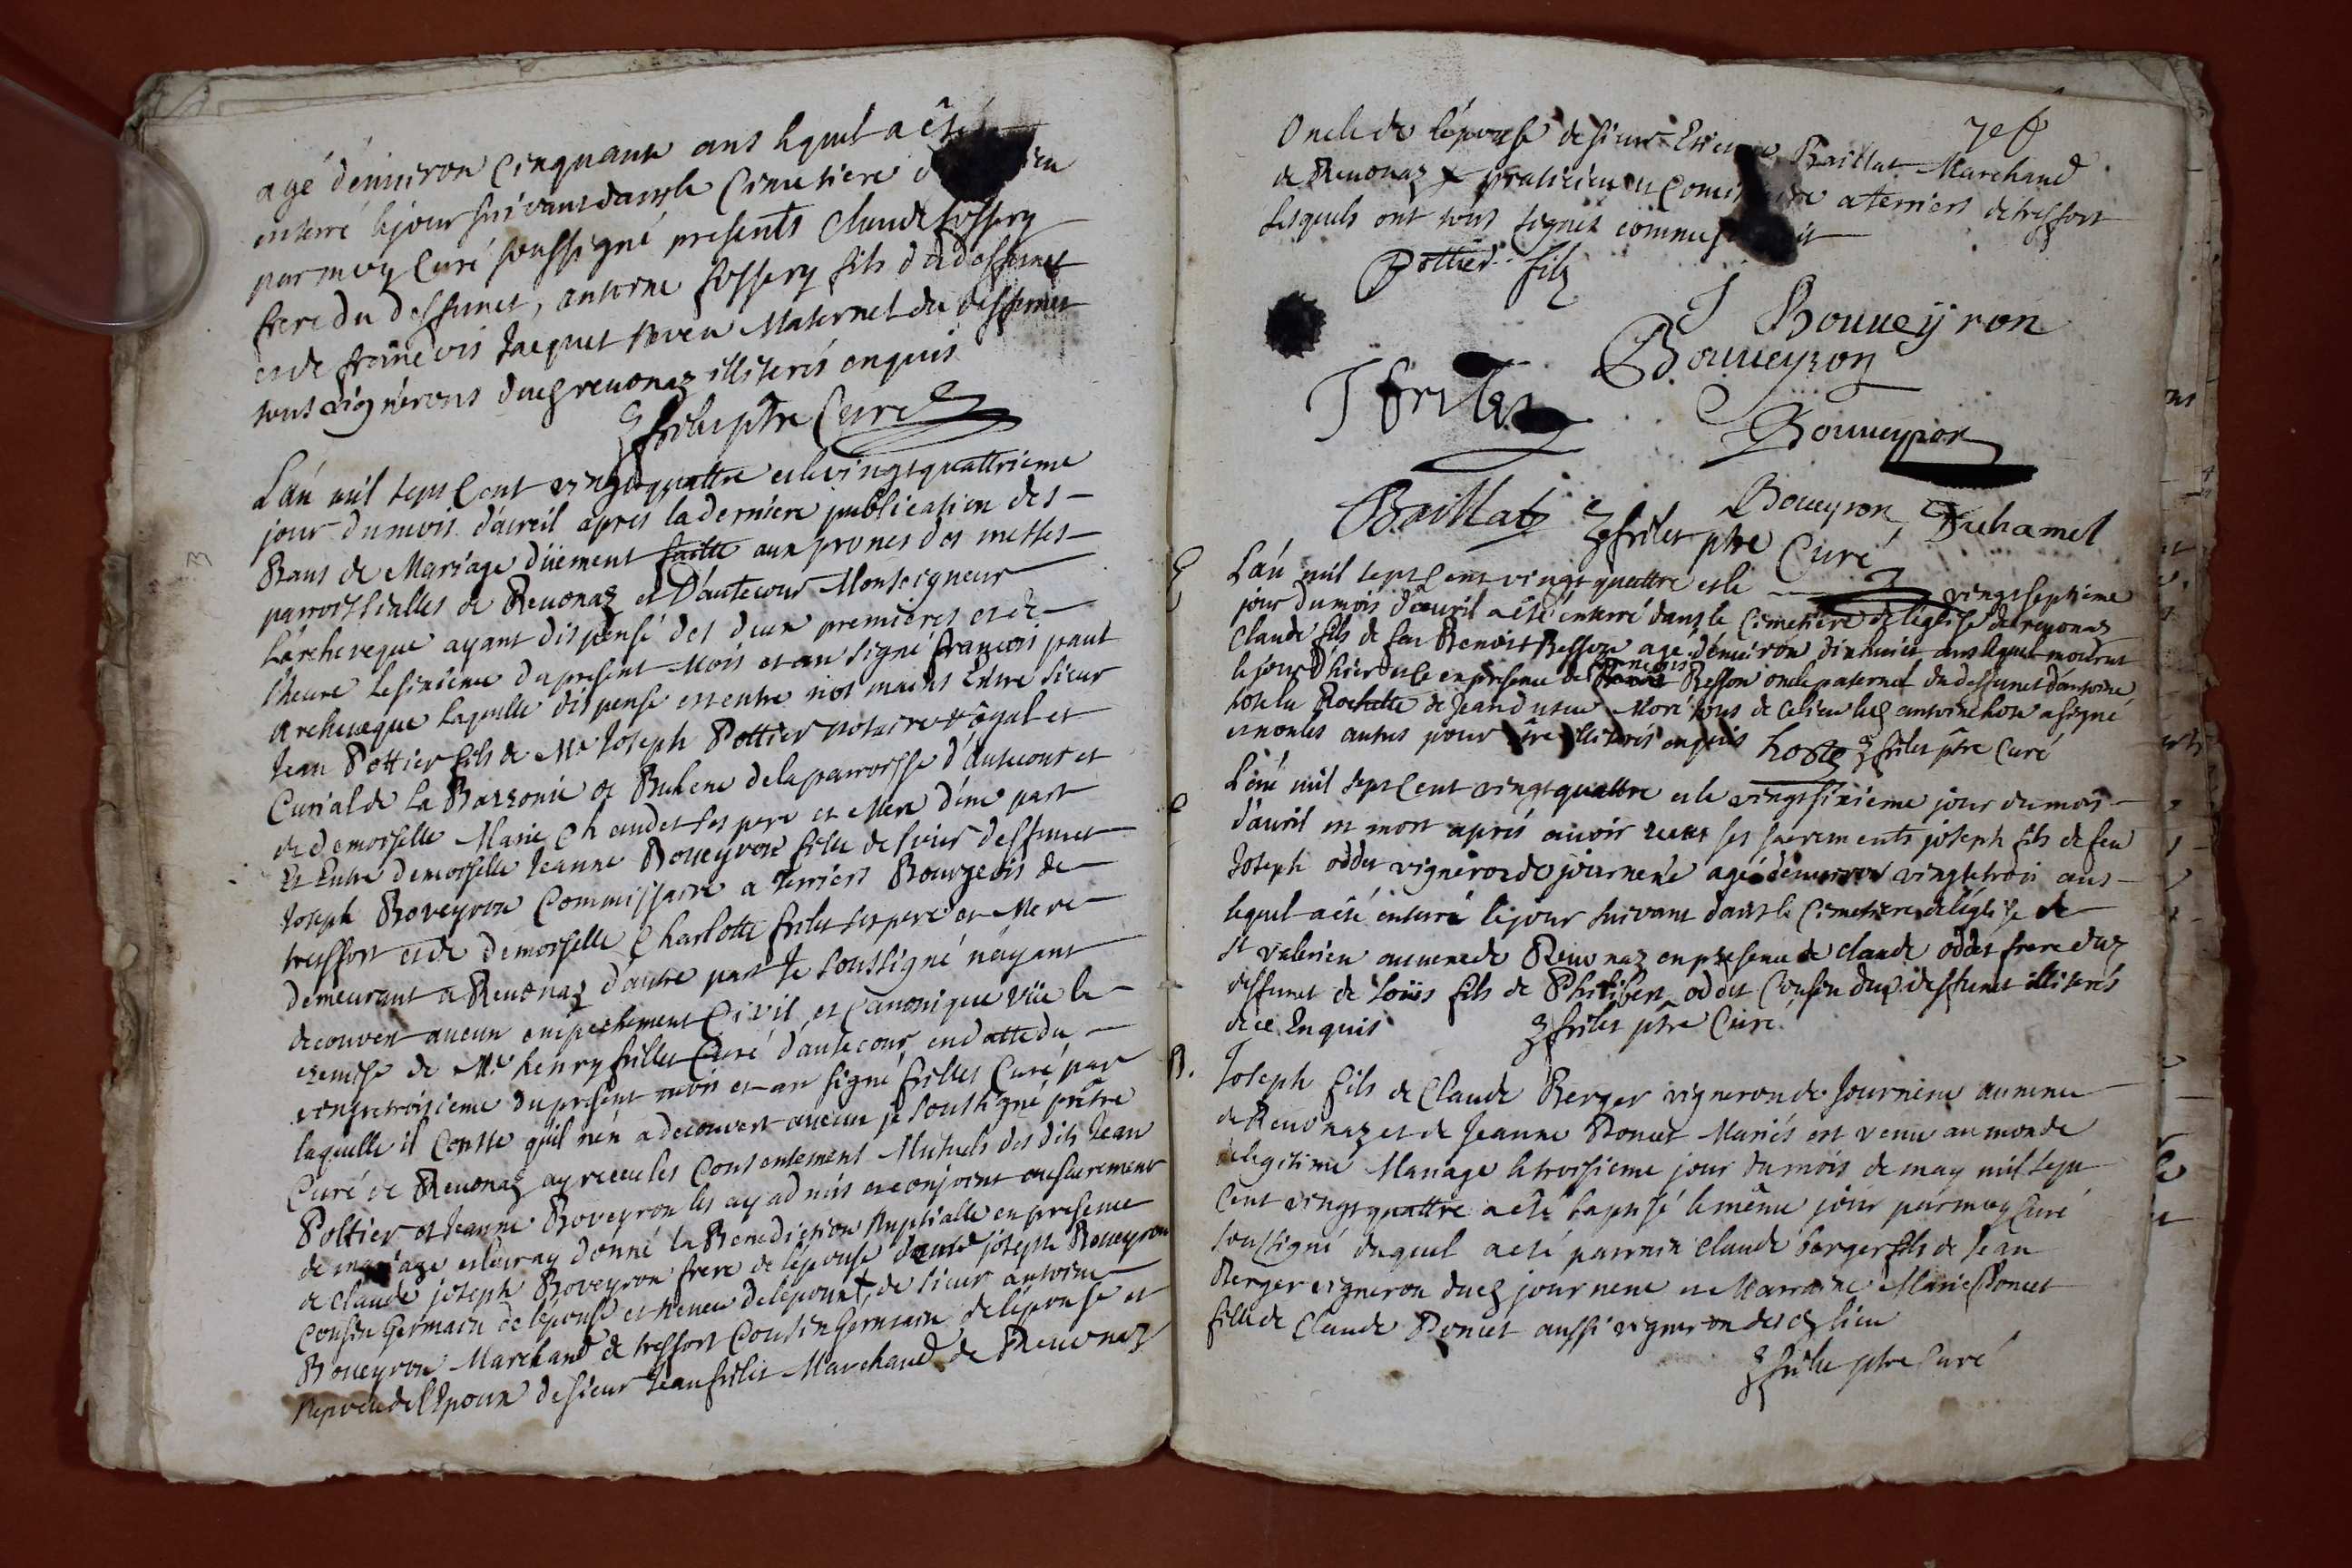 agé d'enuiron Cinquante ans lequel a êté
enterré le jour suivant dans le Cimetiere
par moy Curé soussigné presents Claude sossery
frere du deffunct, antoine sossery fils du deffunct
et de françois Jacquet neveu Maternel du deffunct
tous vignerons dud revonaz illiterés enquis
frilet ptre Curé
L'an mil sept Cent vingt quattre et le vingtquattrieme
jour du mois d'avril apres la derniere publication des
Bans de Mariage düement faitte aux prones des messes
parroissialles de Reuonaz et D'autecour Monseigneur
L'archeveque ayant dispensé des deux premieres et de
l'heure le sixieme du present Mois et an signé françois paul
Archeueque laquelle dispense est entre nos mains Entre sieur
Jean Pottier fils de Me Joseph Pottier notaire Royal et
Curial de la Baronie de Buhene de la parroisse d'autecour et
de demoiselle Marie Chaudet ses pere et Mere d'une part
Et Entre demoiselle Jeanne Boueyron fille de sieur deffunct
Joseph Boveyron Commissaire a terriers Bourgeois de
treffort et de demoiselle Charlotte frilet ses pere et Mere
demeurant a Reuonaz d'autre part Je soussigné n'ayant
decouvert aucun empechement Civil et Canonique vüe la
remise de Me henry frillet Curé d'autecour en datte du
vingttroisieme du present mois et an signé frillet Curé par
laquelle il Conste quil n'en a decouvert aucun je soussigné prêtre
Curé de Reuonaz ay receu les Consentement Mutuels des dits Jean
Pottier et Jeanne Boveyron les ay admis et conjoint au sacrement
de mariage et leur ay donné la Benediction Nuptialle en presence
de Claude joseph Boveyron frere de l'epouse d'autre joseph Boueyron
Cousin Germain de l'epouse et neveu de l'epoux, de sieur antoine
Boueyron Marchand de treffort Cousin Germain de l'épouse et
Nepveu de l'Epoux de sieur Jean frilet Marchand de Reuonaz
7e f
Oncle de l'épouse de sieur Baillat Marchand
de Reuonaz praticien et a terriers de treffort
lesquels ont tous signes comme
Pottier fils
J Bouueyron
Bouueyron
J frilet
Bouueyron
Baillat Boueyron Duhamel
frilet ptre Curé
L'an mil sept Cent vingt quattre et le vingtseptieme
jour du mois d'auril a été enterré dans le Cimetiere de l'eglise de reuonaz
Claude fils de feu Benoist Besson age d'enuiron dixhuict ans lequel mourut
le jour d'hier en presence de Besson oncle paternel du deffunct d'antoine
hoste la Rochette de Jean tous de ce lieu led antoine hoste a signé
et non les autres pour être illiterés enquis hoste frilet ptre Curé
L'an mil sept Cent vingtquattre et le vingtsixieme jour du mois
d'auril est mort aprés auoir receu ses sacrements joseph fils de feu
Joseph oddet vigneron de journene agé d'enuiron vingttrois ans
lequel a êté enterré le jour suivant dans le Cimetiere de l'église de
St valerien au Reuonaz en presence de claude oddet frere dud
deffunct de Loüis fils de Philibert oddet Cousin dud deffunct illiterés
de ce Enquis frilet ptre Curé
B. Joseph fils de Claude Berger vigneron de Journene
de Reuonaz et de Jeanne Poncet Mariés est venu au monde
de legitime Mariage le troisieme jour du mois de may mil sept
Cent vingtquattre a été baptisé le même jour par moy Curé
soussigné duquel a eté parrain Claude berger fils de Jean
Berger vigneron dud journene et Marraine Marie Poncet
fille de Claude Poncet aussi vigneron dud lieu
frilet ptre Curé